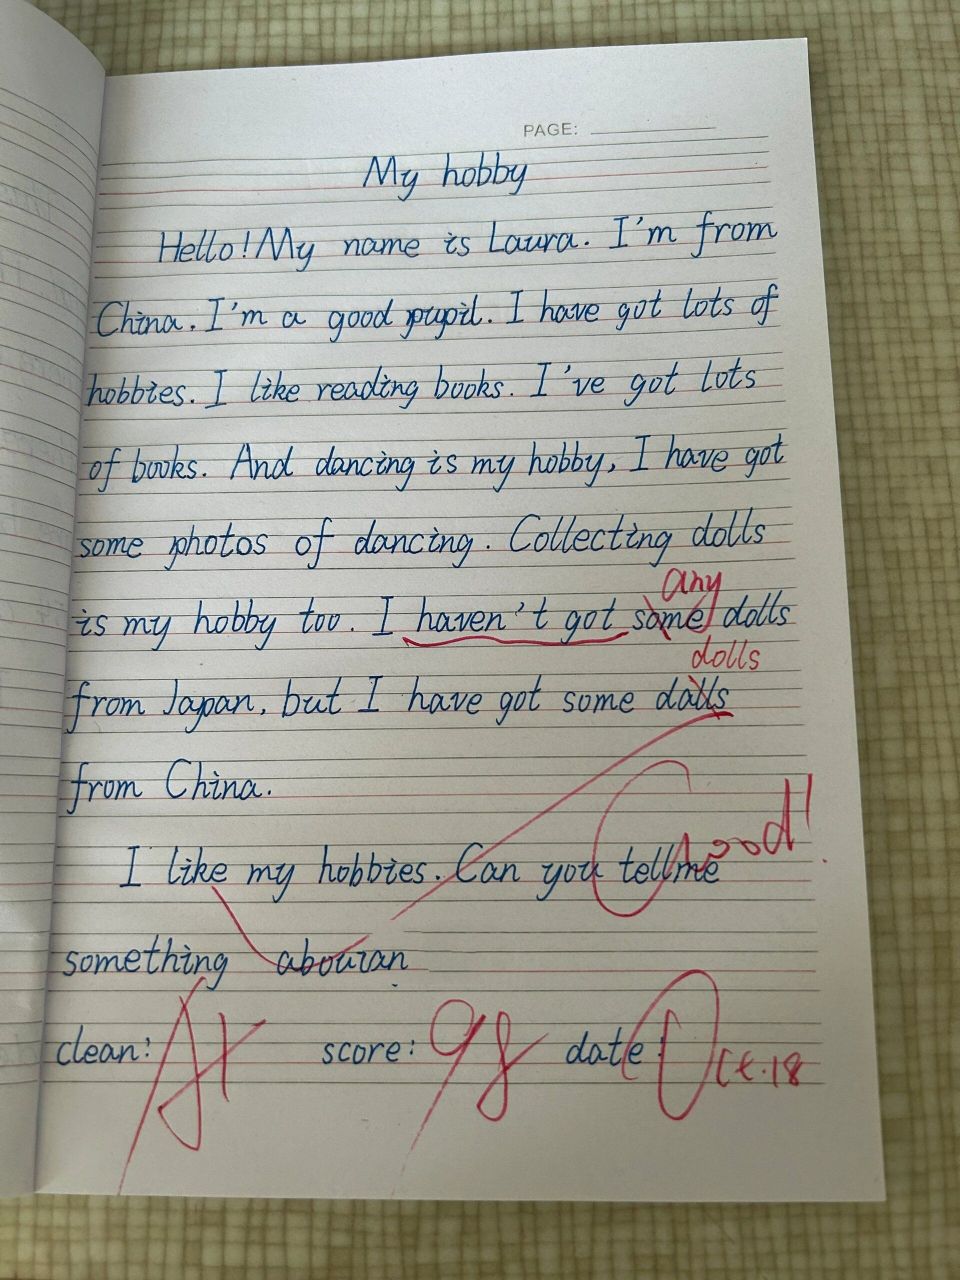 PAGE:
My hobby
Hello! My name is Laura. I'm from
China. I'm a good pupil. I have got lots of
hobbies. I like reading books. I've got lots
of books. And dancing is my hobby, I have got
some photos of dancing. Collecting dolls
any
is my hobby too. I haven't got some dolls
dolls
from Japan, but I have got some dalls
from China.
Good!
I like my hobbies. Can you tell me
something
clean: A+ score: 98 date: Oct.18